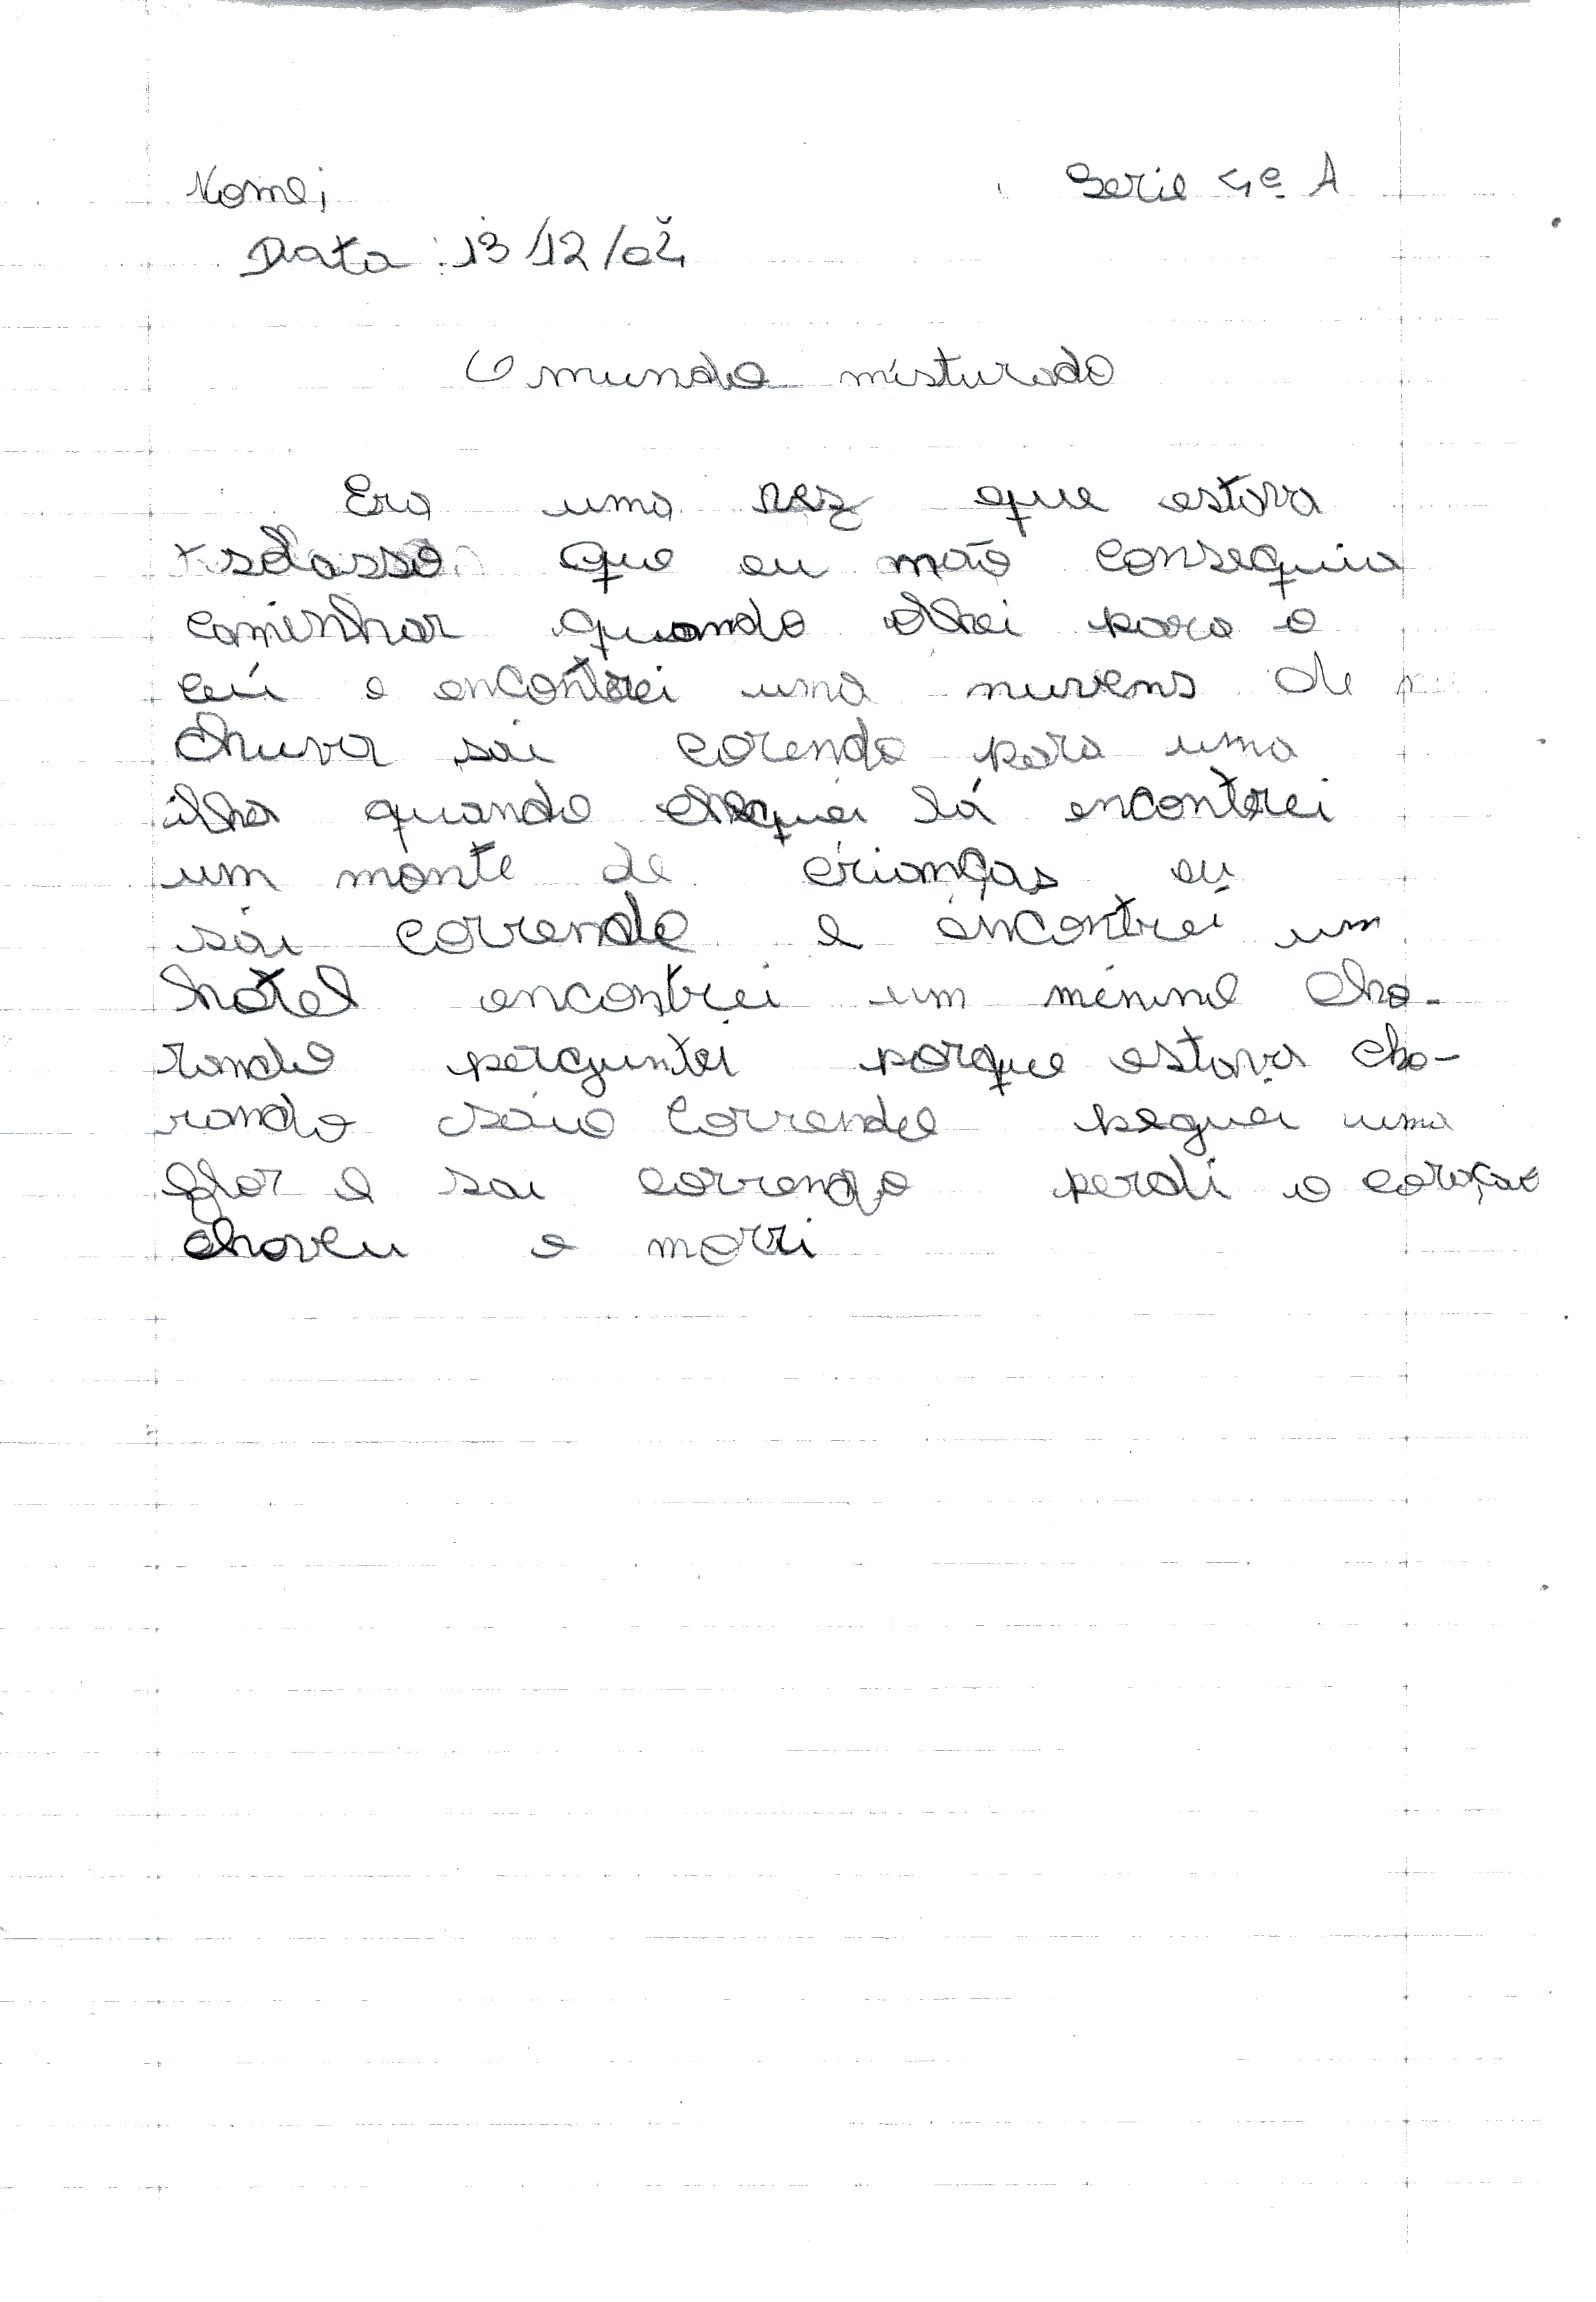 Nome; Serie 4ª A
Data: 13/12/04
O mundo misturado
Era uma vez que estava
solasso que eu não conseguia
caminhar quando olhei para o
ceú e encontrei uma nuvens de
chuva sai corendo para uma
ilha quando cheguei lá encontrei
um monte de crianças eu
sai correndo e encontrei um
hotel encontrei um menino cho-
rando perguntei porque estava cho-
rando saio correndo peguei uma
flor e sai correndo perdi o coração
choveu e morri